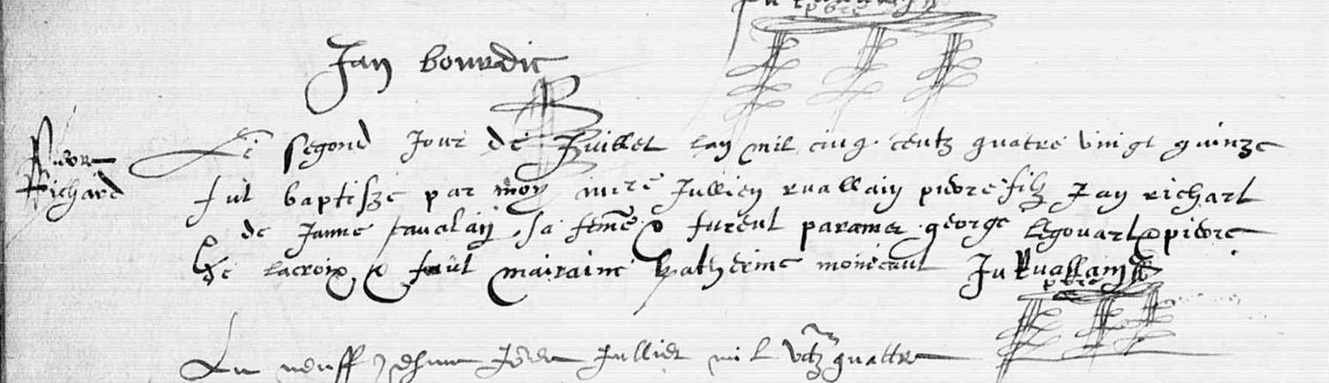 Jan bourdic
Pierre
Richard
Le segond jour de Juillet lan mil cinq centz quatre vingt quinze
fut baptisze par moy mire Jullien Ruallain pierre filz Jan richart
de Janne sa feme & furent paraines george legouart & pierre
lacroix & fuut mairaine Katherine moriceau Ju Ruallain
pbre
Le neuff Jour Juillet mil Vcz quattre